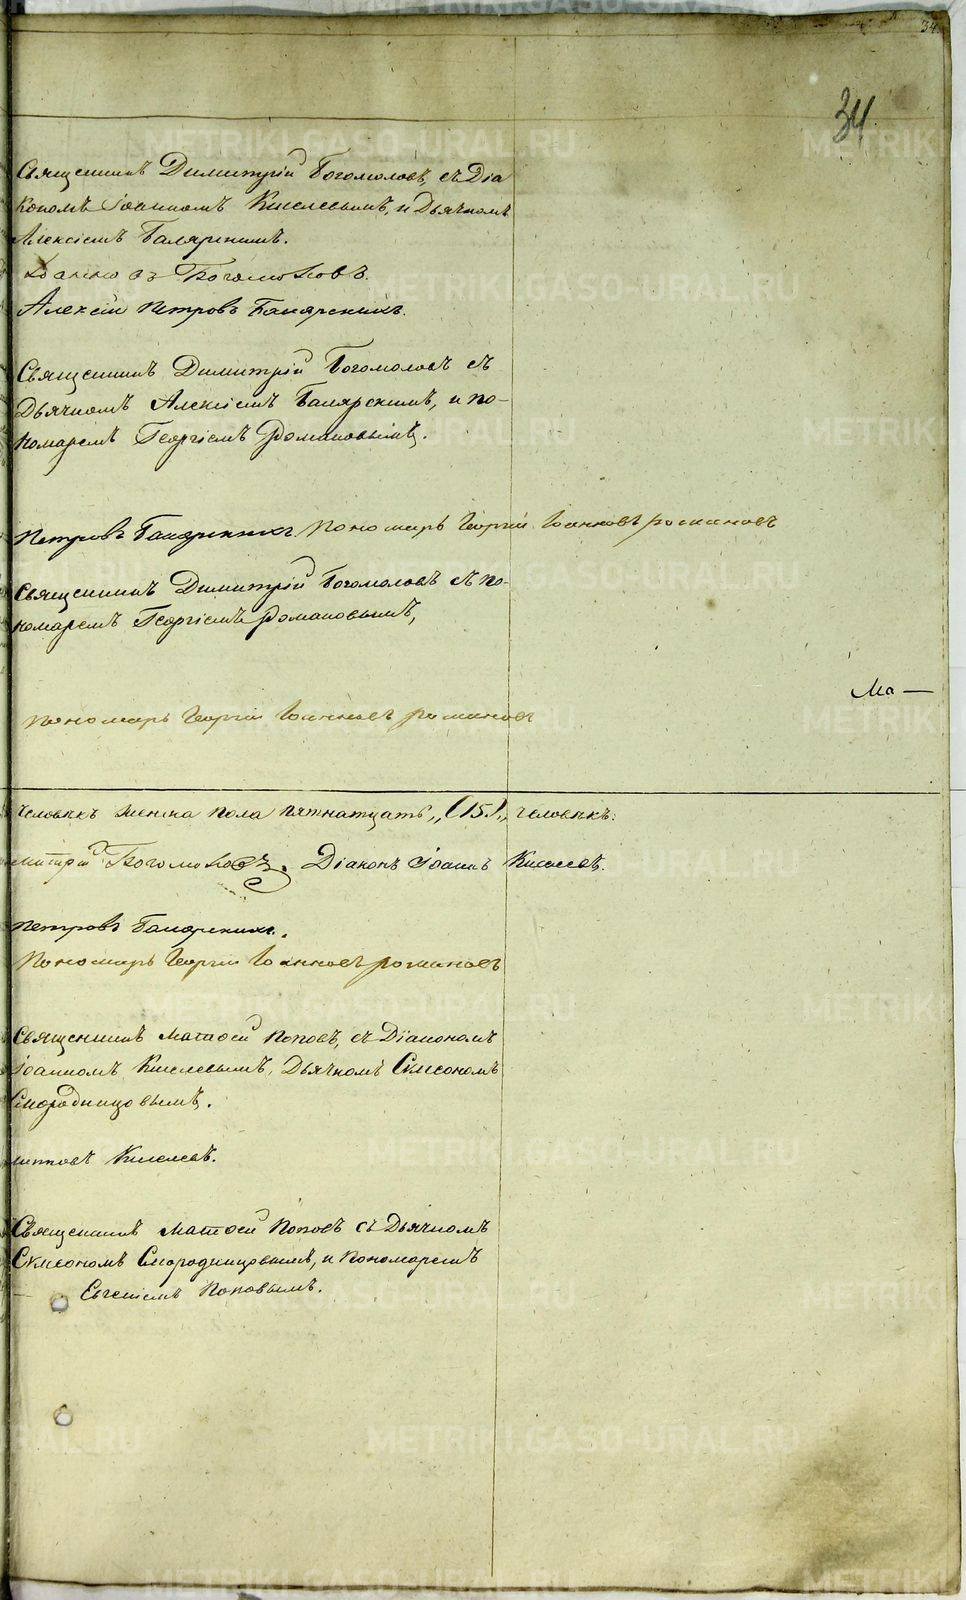 34
34
Священникъ Димитрій Богомоловъ, съ Діа
кономъ Іоанномъ Киселевымъ, и Дьячкомъ
Алексіемъ
Богомоловъ.
Алексій Петровъ
Священникъ Димитрій Богомоловъ съ
Дьячкомъ Алексіемъ и по-
номаремъ Георгіемъ Романовымъ.
Петровъ Пономарь Георгій Іоанновъ романовъ
Священникъ Димитрій Богомоловъ съ по-
номаремъ Георгіемъ Романовымъ,
Ма—
Пономарь Георгій Іоанновъ романовъ
человѣкъ женска пола пятнатцать „(15)„ человѣкъ.
митрій Богомоловъ. Діаконъ Іоаннъ Киселевъ.
Петровъ
Пономарь Георгій Іоанновъ романовъ
Священникъ Матѳей Поповъ, съ Діакономъ
Іоанномъ Киселевымъ, Дьячкомъ Сѵмеономъ
Смородинцовымъ.
Киселевъ.
Священникъ Матѳей Поповъ съ Дьячкомъ
Сѵмеономъ Смородинцовымъ, и Пономаремъ
Евгеніемъ Поповымъ.
METRIKI.GASO-URAL.RU